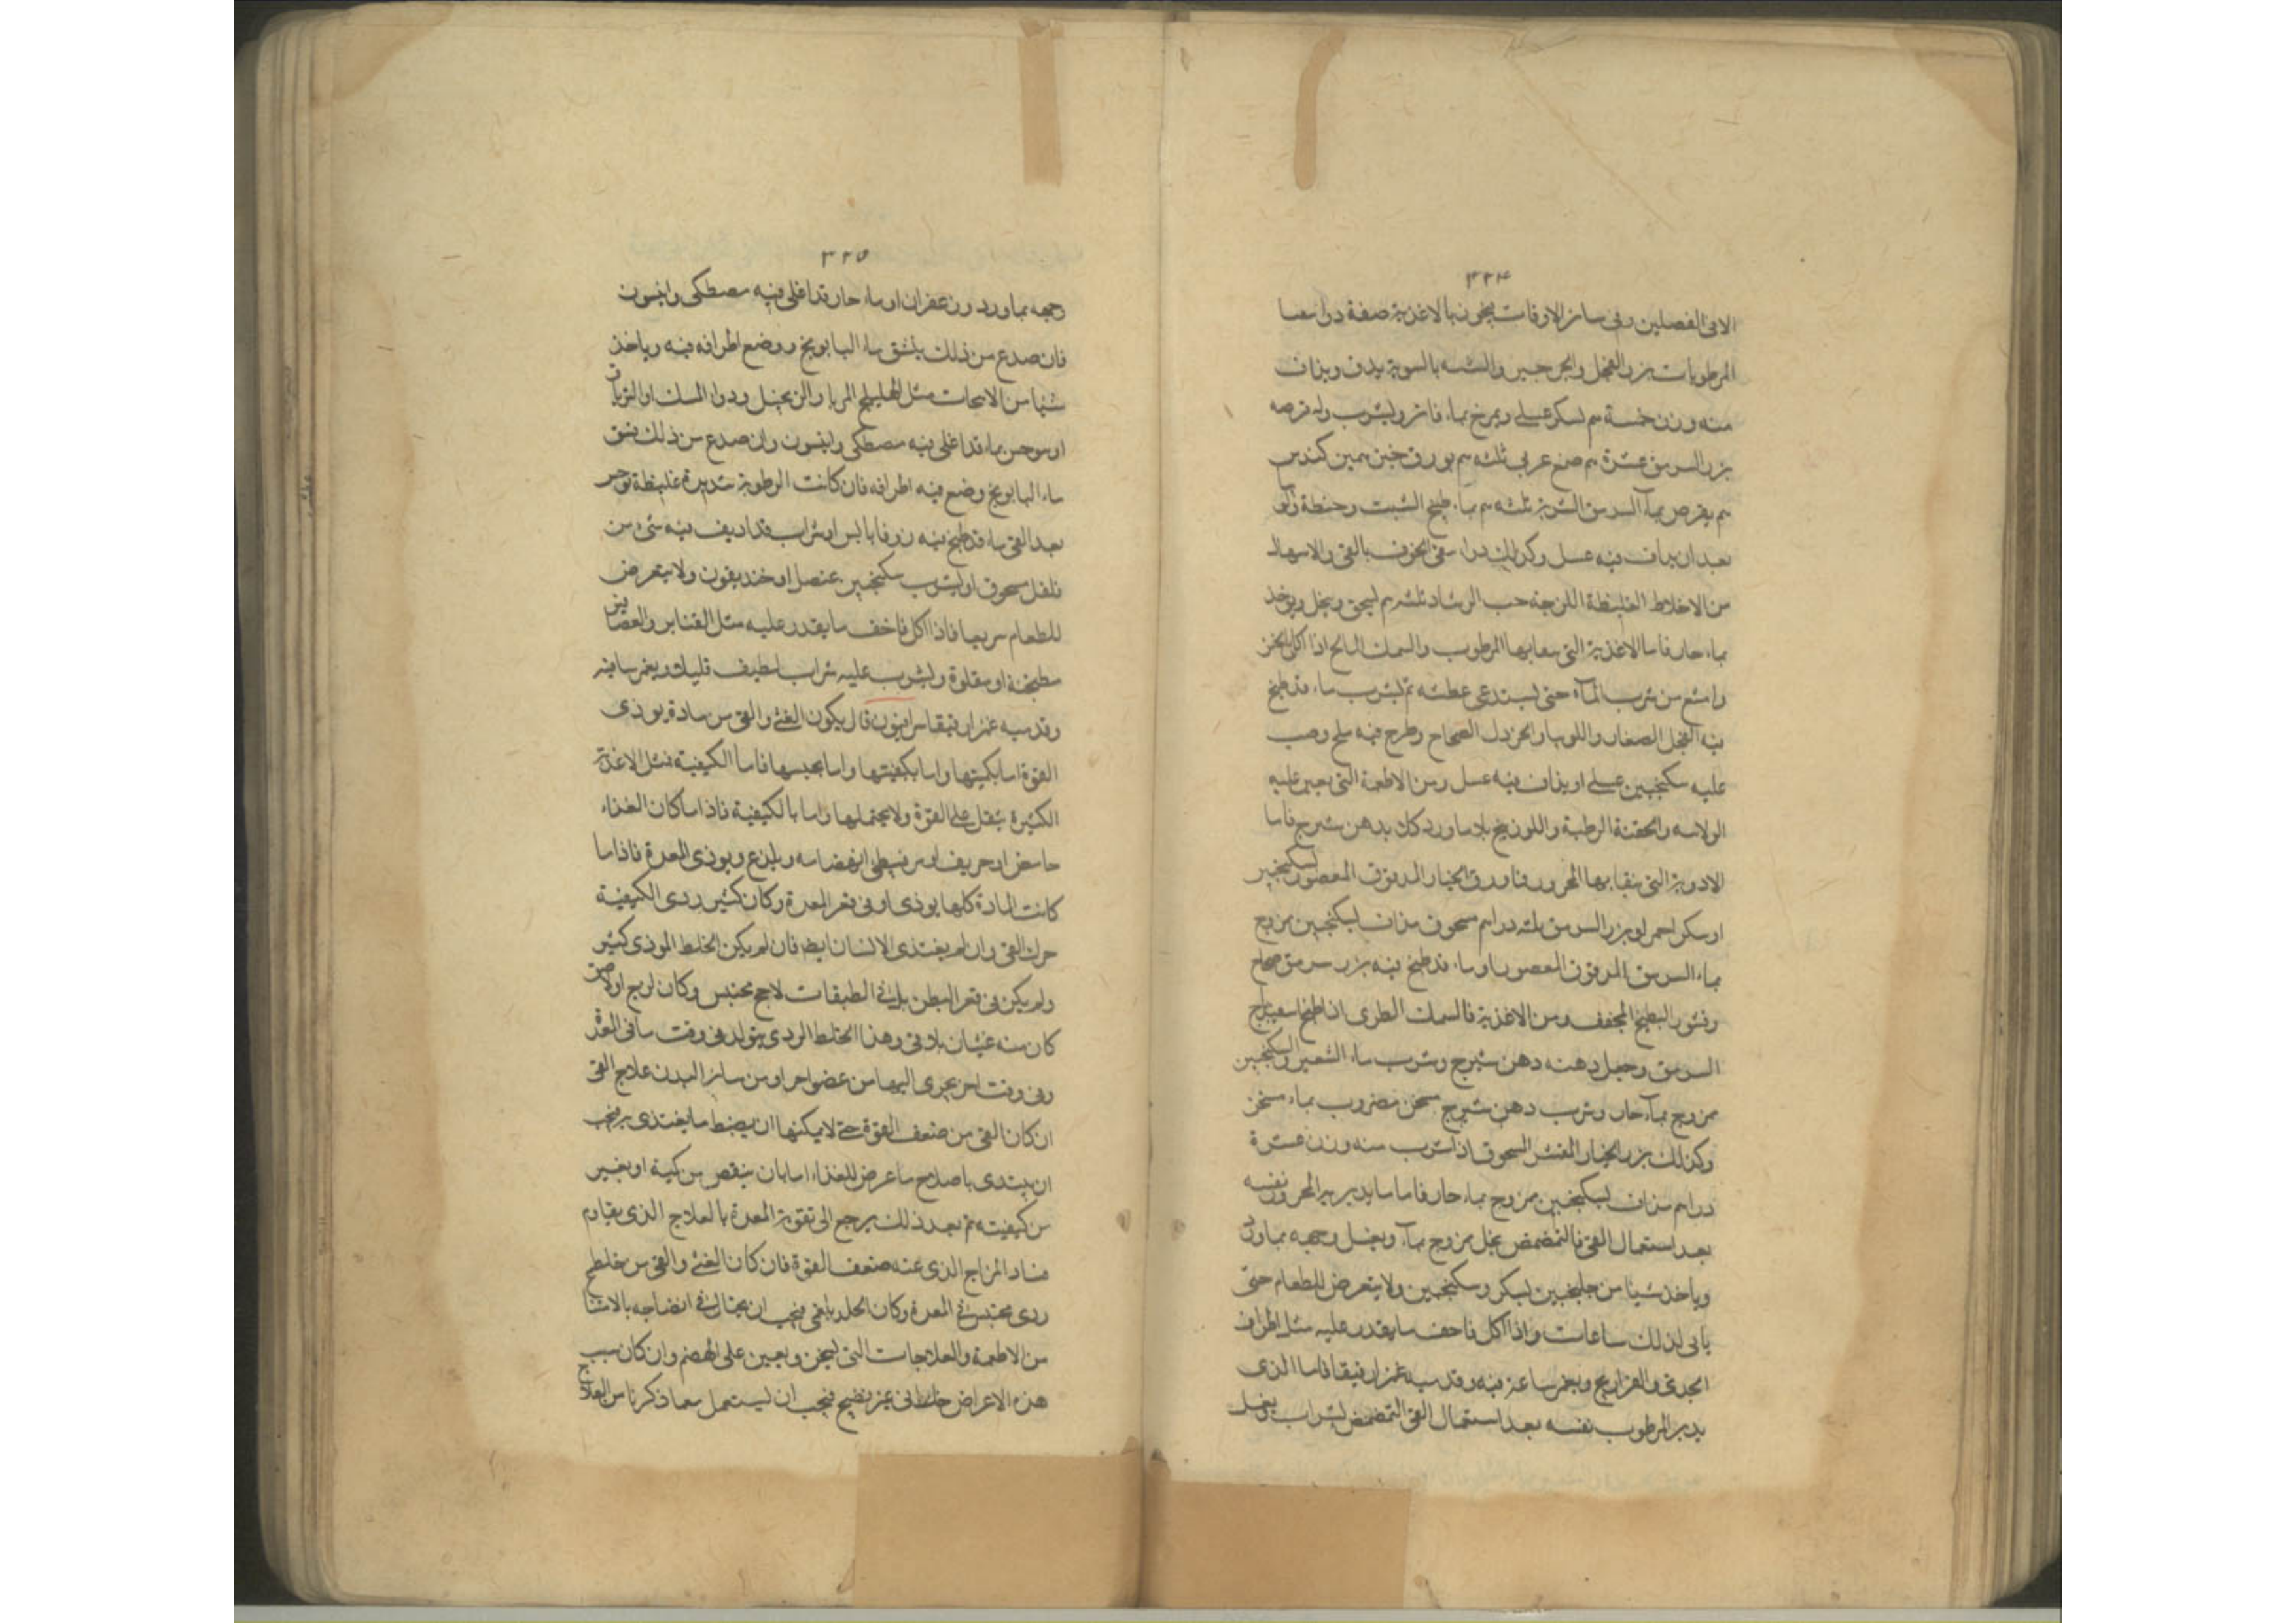 ٣٢٤
الا فى الفصلين وفى سائر الاوقات بالاغذية صفة دواء
المرطوبات بزر الفجل والجرجير والشبه بالسوية يدق ويذاف
منه وزن خمسة م بسكر عسلى ويمزج بماء فاتر ويشرب وله قرصه
بزر السرمق عشرة م صمغ عربى ثلثه م بورق كندس
م يقرص بماء السرمق الشربة ثلثه م بماء طبيخ الشبت وحنطة
بعد ان يداف فيه عسل وكذلك دواء بالقئ والاسهال
من الاخلاط الغليظة اللزجة حب الرشاد ثلثه م ليحق وبخل ويؤخذ
بماء حار فاما الاغذية التى بها المرطوب والسمك المالح اذا اكل
وامتنع من شرب الماء حتى يستدعى عطشه ثم يشرب ماء قد طبخ
فيه الفجل الصغار واللوبيا والخردل الصحاح وطرح فيه ملح وصب
عليه سكنجبين عسلى او يذاف فيه عسل ومن الاطعمة التى يعين عليه
الرطبة واللوزينج بلا ماورد كل بدهن شيرج فاما
الادوية التى بها المحرور فاورق الخيار المدقوق المعصور بسكنجبين
او سكر احمر او بزر السرمق ثلثه دراهم مسحوق مذاف بسكنجبين ممزوج
بماء السرمق المدقوق المعصور او ماء قد طبخ فيه بزر سرمق صحاح
وقشور البطيخ المجفف ومن الاغذية فالسمك الطرى اذا طبخ اسفيذباج
السرمق وجعل دهنه دهن شيرج وشرب ماء الشعير والسكنجبين
ممزوج بماء حار وشرب دهن شيرج مسخن مضروب بماء سخن
وكذلك بزر الخيار المقشر المسحوق اذا شرب منه وزن عشرة
دراهم مذاف بسكنجبين ممزوج بماء حار فاما ما يدبر به المحرور نفسه
بعد استعمال القئ فالتمضمض بخل ممزوج بماء ويغسل وجهه بماورد
وياخذ شيئا من جلنجبين بسكر وسكنجبين ولا يتعرض للطعام حتى
ياتى لذلك ساعات واذا اكل فاخف ما يقدر عليه مثل اطراف
الجدى والفراريج وبخمر ساعة فيه وقد سبه غمزا رفيقا فاما الذى
يدبر المرطوب نفسه بعد استعمال القئ التمضمض بشراب يغسل
٣٢٥
وجهه بماورد وزعفران او ماء حار قد اغلى فيه مصطكى وانيسون
فان صدع من ذلك ينشق ماء البابونج ووضع اطرافه فيه وياخذ
شيئا من مثل الهليلج المربا والزنجبيل ودواء المسك او الترياق
او بماء قد اغلى فيه مصطكى وانيسون وان صدع من ذلك ينشق
ماء البابونج وضع فيه اطرافه فان كانت الرطوبة شديدة غليظة
بعد القئ ماء قد طبخ فيه زوفا يابس او شراب قد اديف فيه شئ من
فلفل مسحوق او يشرب سكنجبين عنصل او خنديقون ولا يتعرض
للطعام سريعا فاذا اكل فاخف ما يقدر عليه مثل القنابر والعصافير
مطبخة او مقلوة ويشرب عليه شراب لطيف قليل ويغمز ساقيه
وقدميه غمزا رفيقا سرابيون قال يكون الغثى والقئ من مادة يوذى
القوة اما بكميتها واما بكيفيتها واما بحبسها فاما الكيفية فمثل الاغذية
الكثيرة يثقل على القوة ولا يحتملها واما بالكيفية فاذا ما كان الغذاء
حامض او حريف او مر فيبطى انهضامه ويلذع ويوذى المعدة فاذا ما
كانت المادة كلها يوذى او فى قعر المعدة وكان كثير ردى الكيفية
حرك القئ وان لم يغتذى الانسان ايضا فان لم يكن الخلط الموذى كثير
ولم يكن فى قعر البطن بل فى الطبقات لاحج محتبس وكان لزج او
كان منه غثيان بلا قئ وهذا الخلط الردى يتولد فى وقت ما فى
وفى وقت اخر يجرى اليها من عضو اخر او من سائر البدن علاج القئ
ان كان القئ من ضعف القوة حتى لا يمكنها ان يضبط ما يغتذى به فيجب
ان يبتدى باصلاح ما عرض للغذاء اما بان ينقص من كمية او يغير
من كيفيته ثم بعد ذلك يرجع الى تقوية المعدة بالعلاج الذى يقاوم
فساد المزاج الذى عنه ضعف القوة فان كان الغثى والقئ من خلط
ردى محتبس فى المعدة وكان الخلط بلغمى فيجب ان يحتال فى انضاجه بالاشيا
من الاطعمة والعلاجات التى ليسخن ويعين على الهضم وان كان سبب
هذه الاعراض خلط نى غير نضيج فيجب ان يستعمل مما ذكرنا من العلاج